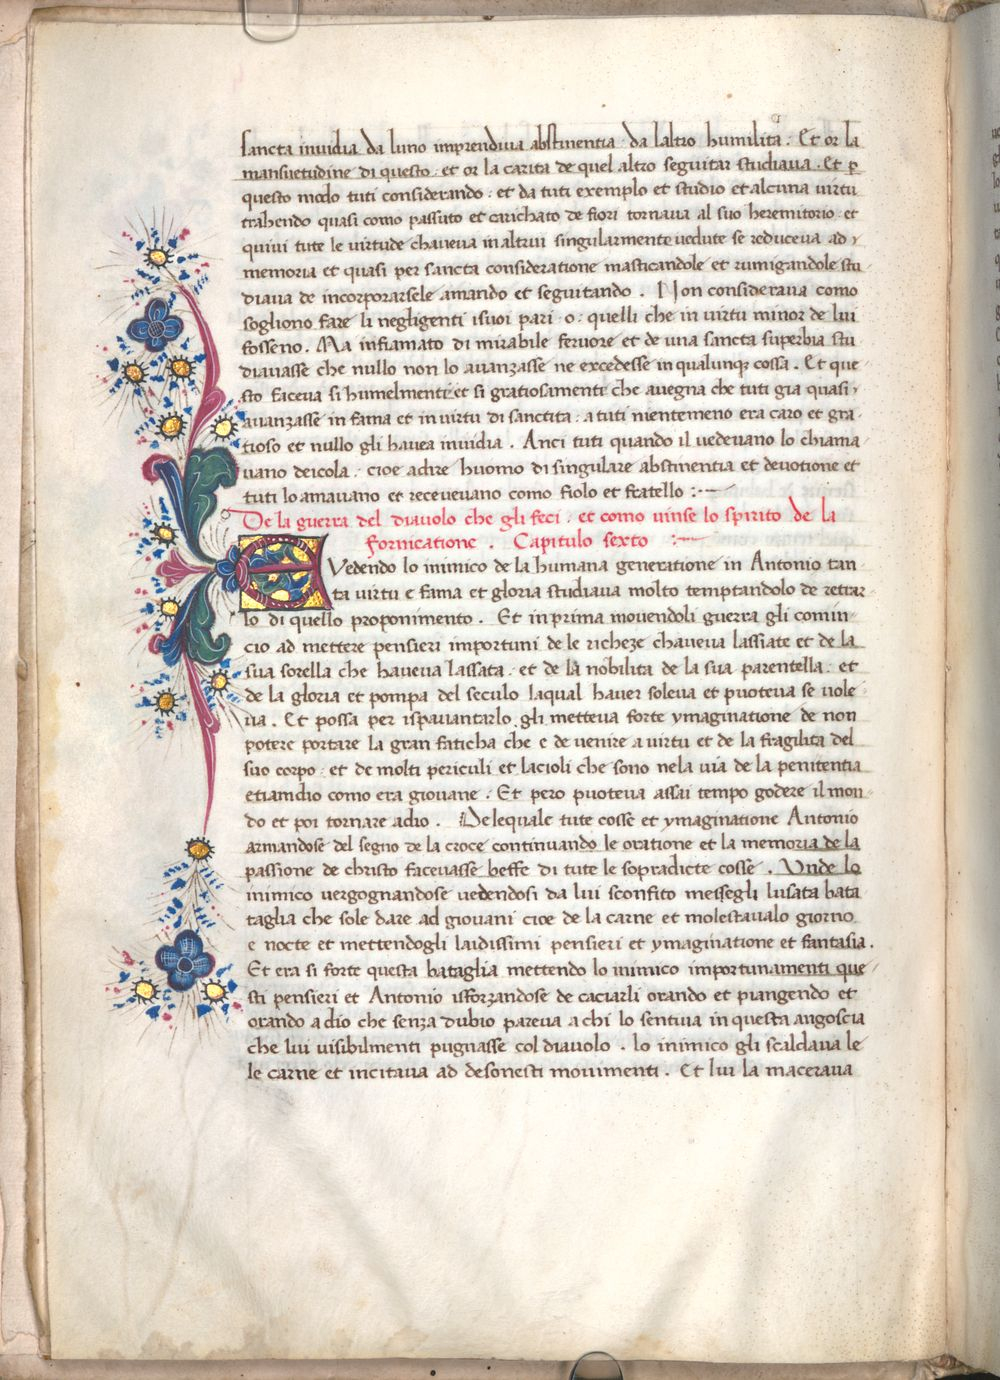 sancta inuidia da luno imprendiua abstinentia · da laltro humilita · Et or la
mansuetudine di questo · et or la carita de quel altro seguitar studiaua · Et p
questo modo tuti considerando · et da tuti exemplo et studio et alcuna uirtu
trahendo quasi como passuto et carichato de fiori tornaua al suo heremitorio · et
quiui tute le uirtude chaueua in altrui singularmente uedute se reduceua ad
memoria et quasi per sancta consideratione masticandole et rumigandole stu
diaua de incorporarsele amando et seguitando . Non consideraua como
sogliono fare li negligenti i suoi pari · o · quelli che in uirtu minor de lui
fosseno . Ma infiamato di mirabile feruore et de una sancta superbia stu
diauasse che nullo non lo auanzasse ne excedesse in qualunq; cossa . Et que
sto faceua si humelmenti et si gratiosamenti che auegna che tuti gia quasi
auanzasse in fama et in uirtu di sanctita · a tuti nientemeno era caro et gra
tioso et nullo gli hauea inuidia . Anci tuti quando il uedeuano lo chiama
uano deicola · cioe adire huomo di singulare abstinentia et deuotione et
tuti lo amauano et receueuano como fiolo et fratello :·—
De la guerra del diauolo che gli feci · et como uinse lo spirito de la
fornicatione . Capitulo sexto :—
Vedendo lo inimico de la humana generatione in Antonio tan
ta uirtu e fama et gloria studiaua molto temptandolo de retrar
lo di quello proponimento . Et in prima mouendoli guerra gli comin
cio ad mettere pensieri importuni de le richeze chaueua lassiate et de la
sua sorella che haueua lassata · et de la nobilita de la sua parentella · et
de la gloria et pompa del seculo laqual hauer soleua et puoteua se uole
ua . Et possa per ispauantarlo gli metteua forte ymaginatione de non
potere portare la gran faticha che e de uenire a uirtu et de la fragilita del
suo corpo · et de molti periculi et lacioli che sono nela uia de la penitentia
etiamdio como era giouane . Et pero puoteua assai tempo godere il mon
do et poi tornare a dio . Delequale tute cosse et ymaginatione Antonio
armandose del segno de la croce continuando le oratione et la memoria de la
passione de christo faceuasse beffe di tute le sopradicte cosse . Vnde lo
inimico uergognandose uedendosi da lui sconfito messegli lusata bata
taglia che sole dare ad giouani cioe de la carne et molestaualo giorno
e nocte et mettendogli laidissimi pensieri et ymaginatione et fantasia .
Et era si forte questa bataglia mettendo lo inimico importunamenti que
sti pensieri et Antonio isforzandose de caciarli orando et piangendo et
orando a dio che senza dubio pareua a chi lo sentiua in questa angoscia
che lui uisibilmenti pugnasse col diauolo . lo inimico gli scaldaua le
le carne et incitaua ad desonesti mouimenti . Et lui la maceraua